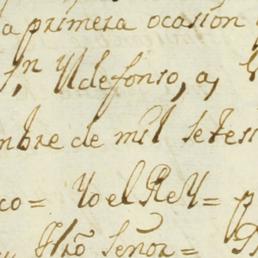 a primera ocasión
S.n Yldefonso, a,
mbre de mil setesi
co= Yo el Rey= p
Nrõ Señor=